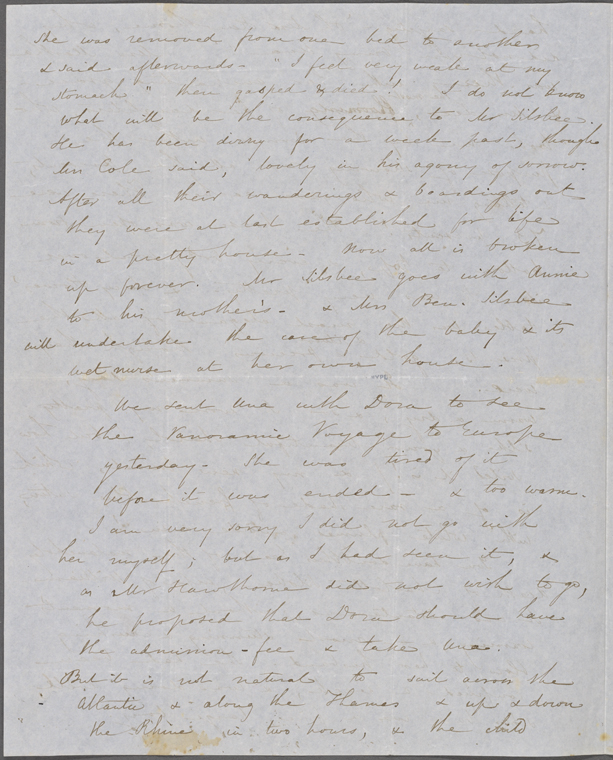 She was removed from one bed to another
& said afterwards - "I feel very weak at my
stomach" then gasped & died! I do not know
what will be the consequence to Mr Silsbee.
He has been dying for a week past, though
Mrs Cole said, lovely in his agony of sorrow.
After all their wanderings & boardings out
they were at last established for life
in a pretty house - Now all is broken
up forever. Mr Silsbee goes with Annie
to his mother's - & Mrs Ben. Silsbee
will undertake the care of the baby & its
wet nurse at her own house.
We sent Una with Dora to see
the Panoramic Voyage to Europe
yesterday - She was tired of it
before it was ended - & too warm.
I am very sorry I did not go with
her myself; but as I had seen it, &
as Mr Hawthorne did not wish to go,
he proposed that Dora should have
the admission-fee & take Una.
But it is not natural to sail across the
Atlantic & along the Thames & up & down
the Rhine in two hours, & the child